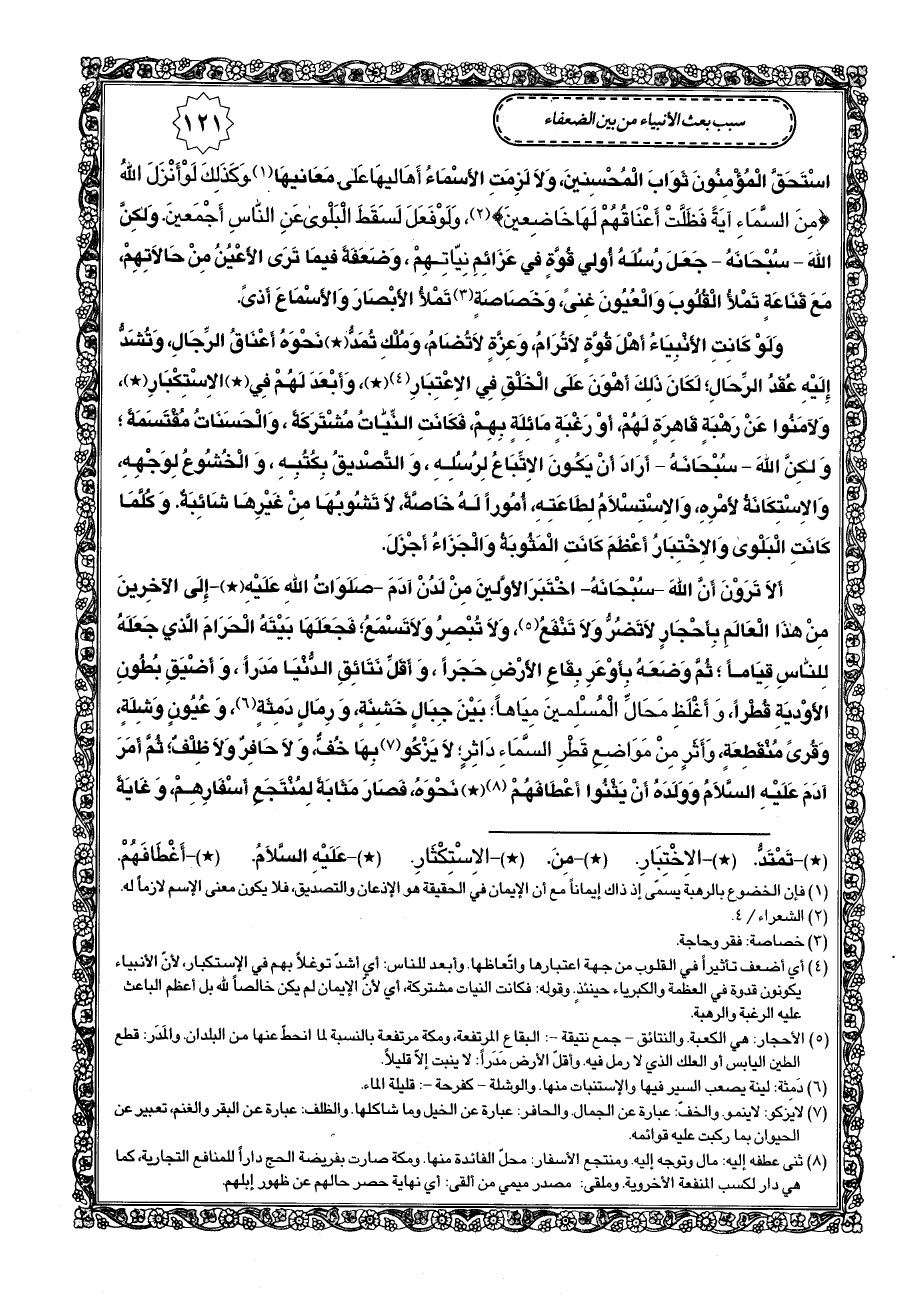 سبب بعث الأنبياء من بين الضعفاء
١٢١
اسْتَحَقَّ الْمُؤْمِنُونَ ثَوَابَ الْمُحْسِنينَ، وَلاَ لَزِمَتِ الأسْمَاءُ أهَاليهَا عَلى مَعَانيهَا(١). وَكَذَلِكَ لَوْ أنْزَلَ اللهُ
﴿مِنَ السَّمَاءِ آيَةً فَظَلَّتْ أعْنَاقُهُمْ لَهَا خَاضِعينَ﴾(٢)، وَلَوْ فَعَلَ لَسَقَطَ الْبَلْوىٰ عَنِ النَّاسِ أجْمَعينَ. وَلكِنَّ
اللهَ - سُبْحَانَهُ - جَعَلَ رُسُلَهُ أُولي قُوَّةٍ في عَزَائِمِ نِيَّاتِهِمْ، وَضَعَفَةً فيمَا تَرَى الأعْيُنُ مِنْ حَالاَتِهِمْ،
مَعَ قَنَاعَةٍ تَمْلأُ الْقُلُوبَ وَالْعُيُونَ غِنىً، وَخَصَاصَةٍ(٣) تَمْلأُ الأبْصَارَ وَالأسْمَاعَ أذىً.
وَلَوْ كَانَتِ الأنْبِيَاءُ أهْلَ قُوَّةٍ لاَتُرَامُ، وَعِزَّةٍ لاَتُضَامُ، وَمُلْكٍ تُمَدُّ(★) نَحْوَهُ أعْنَاقُ الرِّجَالِ، وَتُشَدُّ
إلَيْهِ عُقَدُ الرِّحَالِ؛ لَكَانَ ذلِكَ أهْوَنَ عَلَى الْخَلْقِ فِي الاِعْتِبَارِ(٤)(★)، وَأبْعَدَ لَهُمْ في(★) الاِسْتِكْبَارِ(★)،
وَلآمَنُوا عَنْ رَهْبَةٍ قَاهِرَةٍ لَهُمْ، أوْ رَغْبَةٍ مَائِلَةٍ بِهِمْ، فَكَانَتِ النِّيَّاتُ مُشْتَرَكَةً، وَالْحَسَنَاتُ مُقْتَسَمَةً؛
وَلكِنَّ اللهَ - سُبْحَانَهُ - أرَادَ أنْ يَكُونَ الاِتِّبَاعُ لِرُسُلِهِ، وَالتَّصْديقُ بِكُتُبِهِ، وَالْخُشُوعُ لِوَجْهِهِ،
وَالاِسْتِكَانَةُ لأمْرِهِ، وَالاِسْتِسْلاَمُ لِطَاعَتِهِ، أُمُوراً لَهُ خَاصَّةً، لاَ تَشُوبُهَا مِنْ غَيْرِهَا شَائِبَةٌ. وَكُلَّمَا
كَانَتِ الْبَلْوىٰ وَالاِخْتِبَارُ أعْظَمَ كَانَتِ الْمَثُوبَةُ وَالْجَزَاءُ أجْزَلَ.
ألاَ تَرَوْنَ أنَّ اللهَ -سُبْحَانَهُ- اخْتَبَرَ الأوَّلينَ مِنْ لَدُنْ آدَمَ -صَلَوَاتُ اللهِ عَلَيْهِ(★)- إلَى الآخِرينَ
مِنْ هذَا الْعَالَمِ بِأحْجَارٍ لاَتَضُرُّ وَلاَ تَنْفَعُ(٥)، وَلاَ تُبْصِرُ وَلاَتَسْمَعُ؛ فَجَعَلَهَا بَيْتَهُ الْحَرَامَ الَّذي جَعَلَهُ
لِلنَّاسِ قِيَاماً؛ ثُمَّ وَضَعَهُ بِأوْعَرِ بِقَاعِ الأرْضِ حَجَراً، وَأقَلِّ نَتَائِقِ الدُّنْيَا مَدَراً، وَأضْيَقِ بُطُونِ
الأوْدِيَةِ قُطْراً، وَأغْلَظِ مَحَالِّ الْمُسْلِمينَ مِيَاهاً؛ بَيْنَ جِبَالٍ خَشْنَةٍ، وَرِمَالٍ دَمِثَةٍ(٦)، وَعُيُونٍ وَشِلَةٍ،
وَقُرىً مُنْقَطِعَةٍ، وَأثَرٍ مِنْ مَوَاضِعِ قَطْرِ السَّمَاءِ دَاثِرٍ؛ لاَ يَزْكُو(٧) بِهَا خُفٌّ، وَلاَ حَافِرٌ وَلاَ ظِلْفٌ؛ ثُمَّ أمَرَ
آدَمَ عَلَيْهِ السَّلاَمُ وَوَلَدَهُ أنْ يَثْنُوا أعْطَافَهُمْ(٨)(★) نَحْوَهُ، فَصَارَ مَثَابَةً لِمُنْتَجَعِ أسْفَارِهِمْ، وَغَايَةً
(★)-تَمْتَدُّ. (★)-الاِخْتِبَارِ. (★)-مِنَ. (★)-الاِسْتِكْثَارِ. (★)-عَلَيْهِ السَّلاَمُ. (★)-أغْطَافَهُمْ.
(١) فإن الخضوع بالرهبة يسمّى إذ ذاك إيماناً مع أن الإيمان في الحقيقة هو الإذعان والتصديق، فلا يكون معنى الإسم لازماً له.
(٢) الشعراء / ٤.
(٣) خصاصة: فقر وحاجة.
(٤) أي أضعف تأثيراً في القلوب من جهة اعتبارها واتّعاظها. وأبعد للناس: أي أشدّ توغلاً بهم في الإستكبار، لأنّ الأنبياء
يكونون قدوة في العظمة والكبرياء حينئذٍ. وقوله: فكانت النيات مشتركة، أي لأنّ الإيمان لم يكن خالصاً لله بل أعظم الباعث
عليه الرغبة والرهبة.
(٥) الأحجار: هي الكعبة. والنتائق - جمع نتيقة -: البقاع المرتفعة، ومكة مرتفعة بالنسبة لما انحطّ عنها من البلدان. والمَدَر: قطع
الطين اليابس أو العلك الذي لا رمل فيه. وأقلّ الأرض مَدَراً: لا ينبت إلاّ قليلاً.
(٦) دَمِثة: لينة يصعب السير فيها والإستنبات منها. والوشلة - كفرحة -: قليلة الماء.
(٧) لايزكو: لاينمو. والخفّ: عبارة عن الجمال. والحافر: عبارة عن الخيل وما شاكلها. والظلف: عبارة عن البقر والغنم، تعبير عن
الحيوان بما ركبت عليه قوائمه.
(٨) ثنى عطفه إليه: مال وتوجه إليه. ومنتجع الأسفار: محلّ الفائدة منها. ومكة صارت بفريضة الحج داراً للمنافع التجارية، كما
هي دار لكسب المنفعة الأخروية. وملقى: مصدر ميمي من ألقى: أي نهاية حصر حالهم عن ظهور إبلهم.